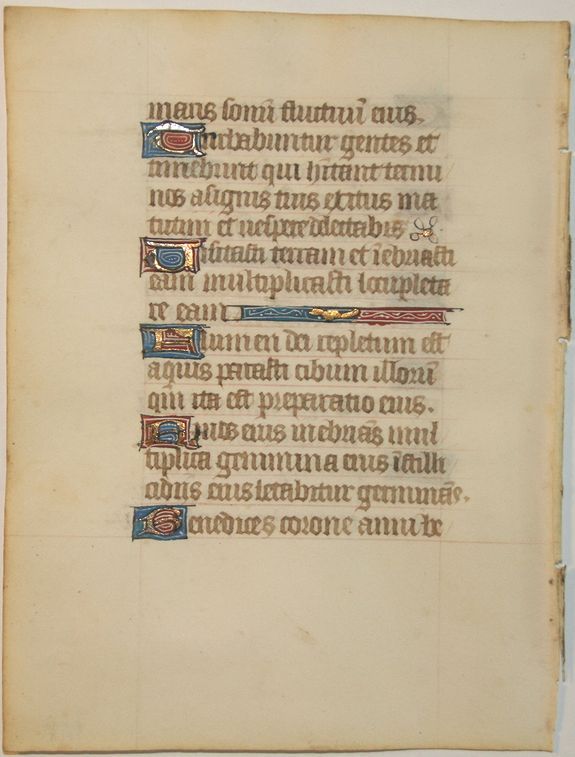 maris sonū fluctuū eius.
Turbabuntur gentes et
timebunt qui hītant termi
nos a signis tuis exitus ma
tutini et uespere delectabis
Uisitasti terram et īebriasti
eam multiplicasti locupleta
re eam
Flumen dei repletum est
aquis parasti cibum illorū
qui ita est preparatio eius.
Riuos eius inebriās mul
tiplica genimina eius ī stilli
cidiis eius letabitur germinās.
Benedices corone anni be